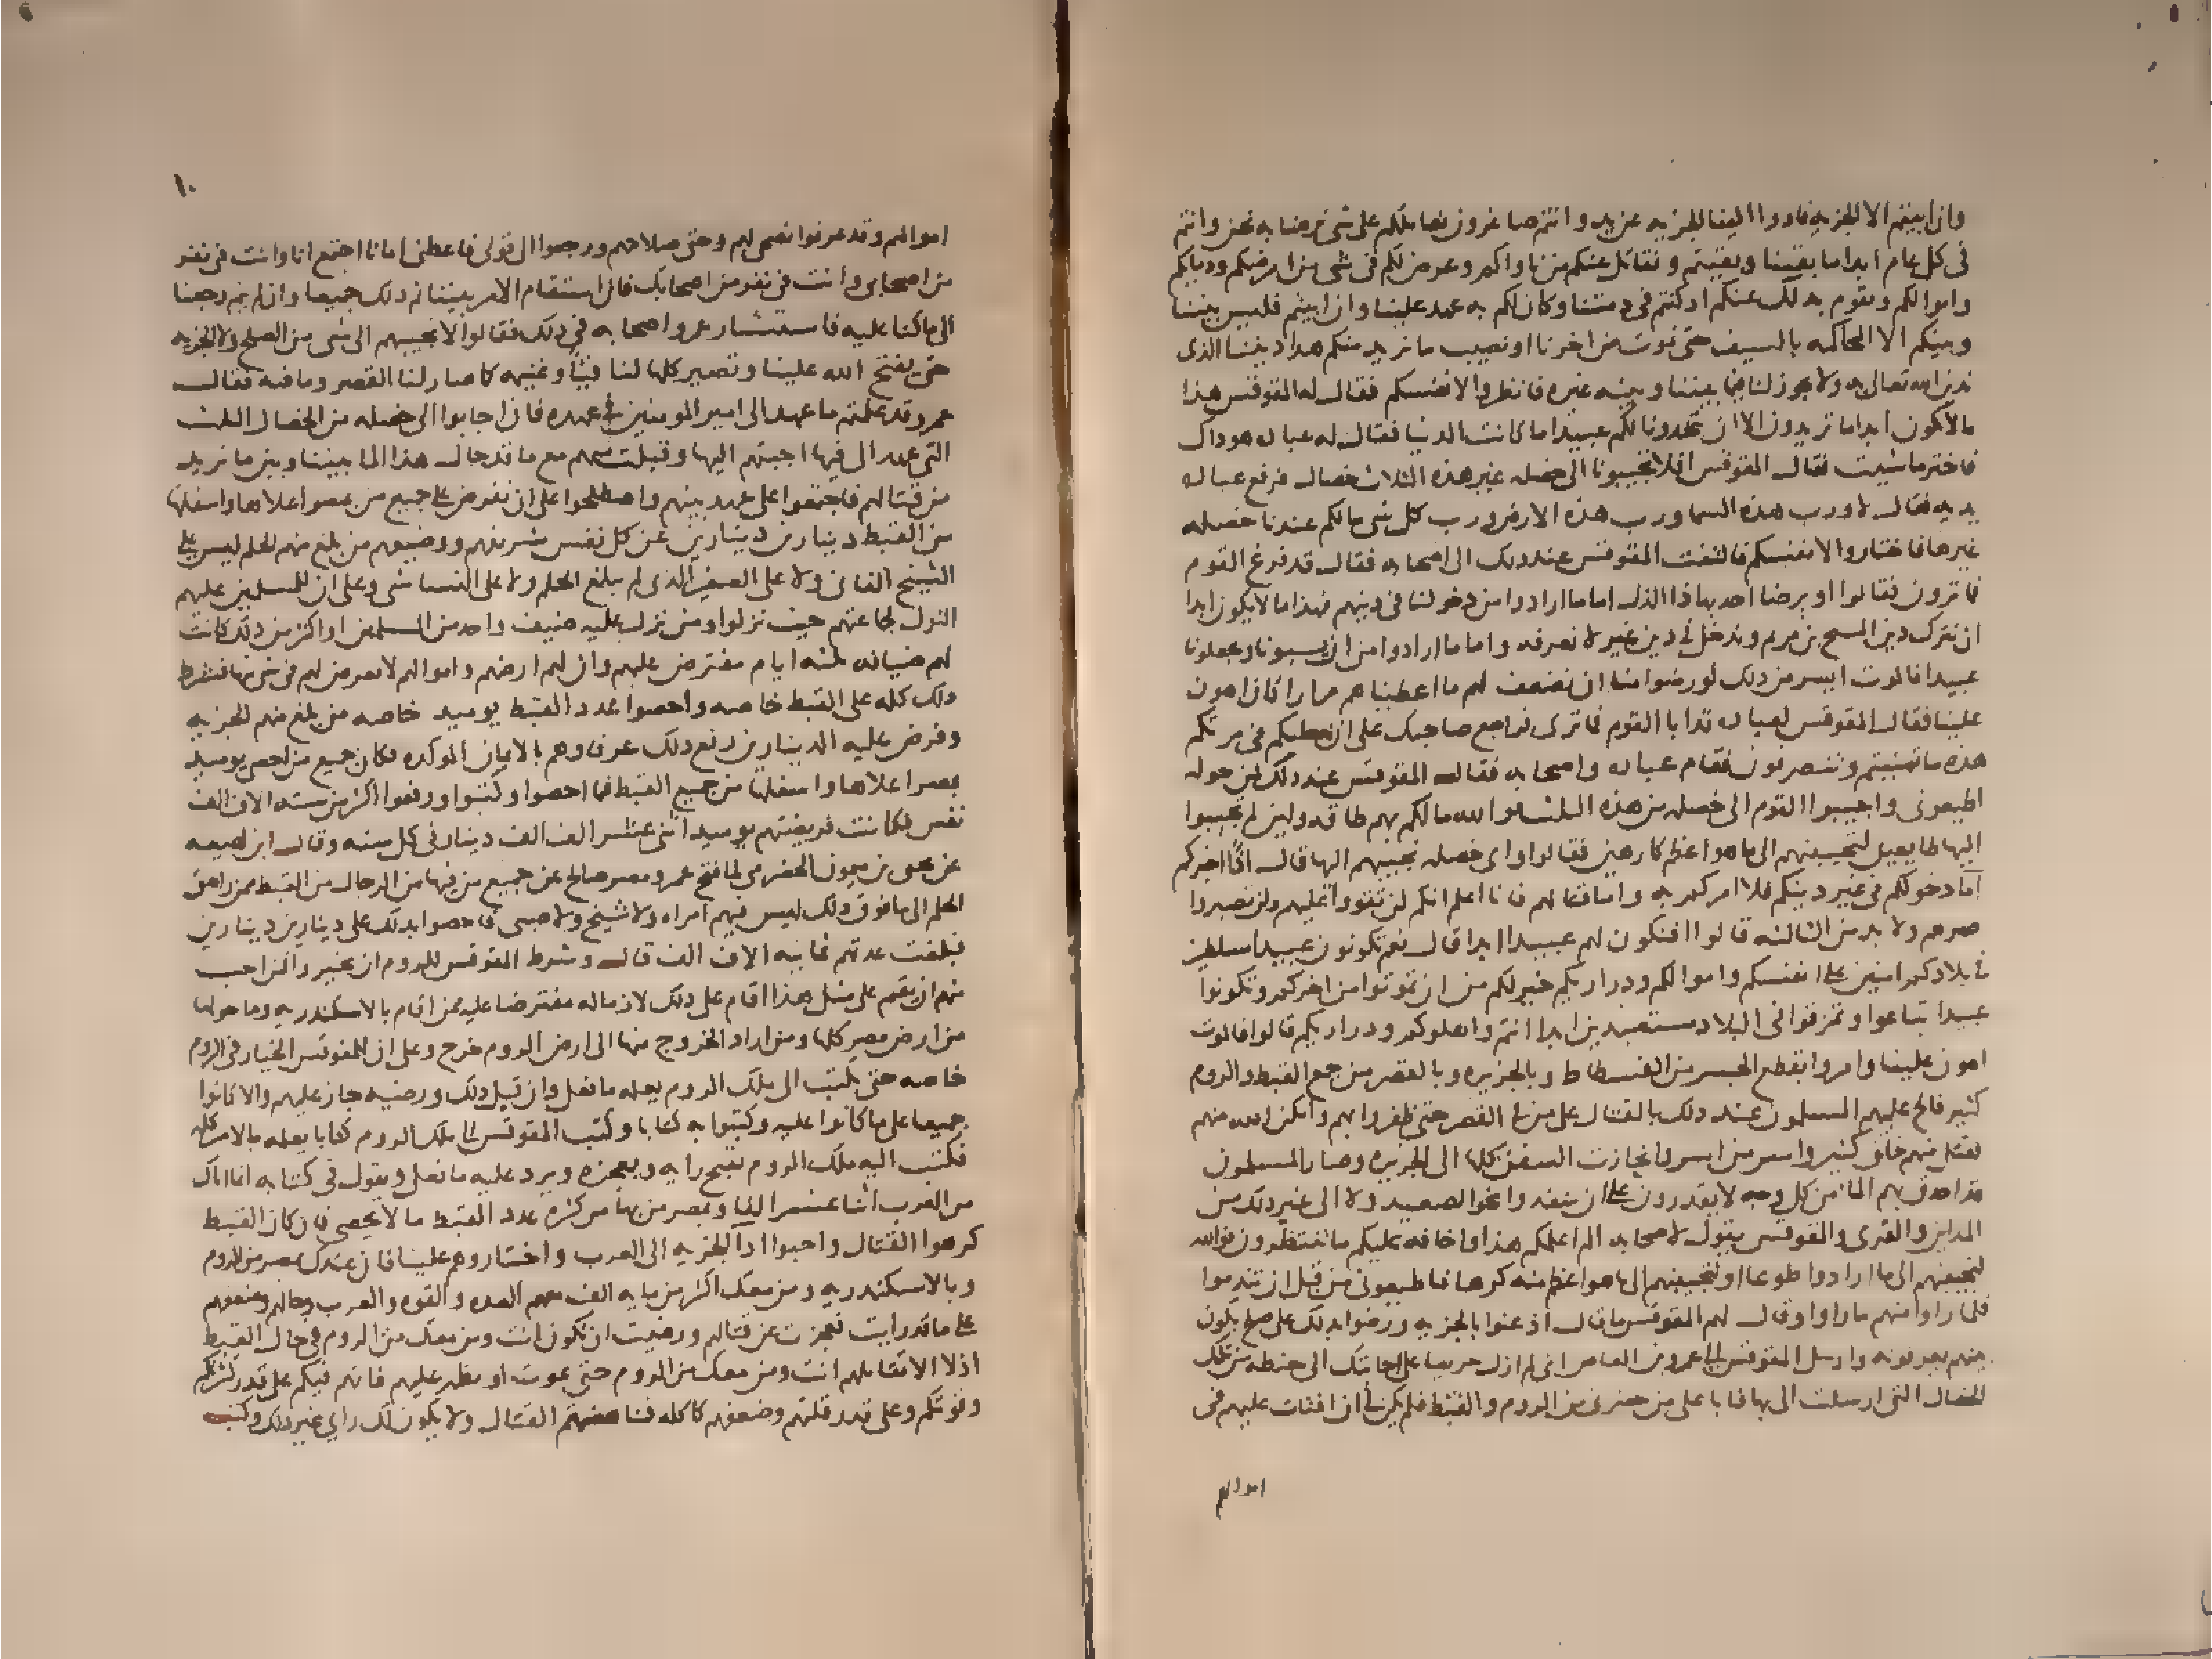 وان ابيتم الا الجزيه فادوا الينا الجزيه عن يد وانتم صاغرون نعاملكم على شى نرضا به نحن وانتم
فى كل عام ابدا ما بقينا وبقيتم ونقاتل عنكم من ناواكم وعرض لكم فى شى من ارضكم ودمايكم
واموالكم ونقوم بذلك عنكم اذ كنتم فى ذمتنا وكان لكم به عهد علينا وان ابيتم فليس بيننا
وبينكم الا المحاكمه بالسيف حتى نموت من اخرنا او نصيب ما نريد منكم هذا ديننا الذى
ندين الله تعالى به ولا يجوز لنا فيما بيننا وبينه غيره فانظروا لانفسكم فقال له المقوقس هذا
مالا يكون ابدا ما تريدون الا ان تتخدونا لكم عبيدا ما كانت الدنيا فقال له عباده هو داك
فاختر ما شيت فقال المقوقس افلا تجيبونا الى خصله غير هذه الثلاث خصال فرفع عباده
يديه فقال لا ورب هذه السما ورب هذه الارض ورب كل شى مالكم عندنا خصله
غيرها فاختاروا لانفسكم فالتفت المقوقس عند دلك الى اصحابه فقال قد فرغ القوم
فما ترون فقالوا او يرضا احد بهاذا الذل اما ما ارادوا من دخولنا فى دينهم فهذا ما لا يكون ابدا
ان نترك دين المسيح بن مريم وندخل فى دين غيره لا نعرفه واما ما ارادوا من ان يسبونا ويجعلونا
عبيدا فالموت ايسر من دلك لو رضوا منا ان نضعف لهم ما اعطيناهم مرارا كان اهون
علينا فقال المقوقس لعباده قد ابا القوم فما ترى فراجع صاحبك على ان نعطيكم فى مرتكم
هذه ما تمنيتم وتنصرفون فقام عباده واصحابه فقال المقوقس عند دلك لمن حوله
اطيعونى واجيبوا القوم الى خصله من هذه الثلث فوا الله مالكم بهم طاقه ولين لم تجيبوا
اليها طايعين لتجيبنهم الى ما هو اعظم كارهين فقالوا واى خصله نجيبهم اليها قال اذًا اخبركم
اما دخولكم فى غير دينكم فلا امركم به واما قتالهم فانا اعلم انكم لن تقووا عليهم ولن تصبروا
صبرهم ولا بد من الثالثه قالوا افنكون لهم عبيدا ابدا قال نعم تكونون عبيدا مسلطين
فى بلادكم امنين على انفسكم واموالكم ودراريكم خير لكم من ان تموتوا من اخركم وتكونوا
عبيدا تباعوا وتمزقوا فى البلاد مستعبدين ابدا انتم واهلوكم ودراريكم قالوا فالموت
اهون علينا وامروا بقطع الجسر من الفسطاط وبالجزيره وبالقصر من جمع القبط والروم
كثير فالح عليهم المسلمون عند دلك بالقتال على من فى القصر حتى ظفروا بهم وامكن الله منهم
فقتل منهم خلق كثير واسر من اسر وانحازت السفن كلها الى الجزيره وصار المسلمون
قد احدق بهم الما من كل وجه لا يقدرون على ان ينفدوا نحو الصعيد ولا الى غير دلك من
المداين والقرى والمقوقس يقول لاصحابه الم اعلمكم هذا واخافه عليكم ما تنتظرون فوالله
لتجيبنهم الى ما ارادوا طوعا او لتجيبنهم الى ما هو اعظم منه كرها فاطيعونى من قبل ان تندموا
فلما راوا منهم ما راوا وقال لهم المقوقس ما قال اذعنوا بالجزيه ورضوا بدلك على صلح يكون
بينهم يعرفونه وارسل المقوقس الى عمرو بن العاص انى لم ازل حريصا على اجابتك الى خصله من تلك
الخصال التى ارسلت الى بها فابا على من حضرنى من الروم والقبط فلم يكن لى ان افتات عليهم فى
اموالهم
١٠
اموالهم وقد عرفوا نصحى لهم وحتى صلاحهم ورجعوا الى قولى فاعطنى امانا اجتمع انا وانت فى نفر
من اصحابى وانت فى نفر من اصحابك فان استقام الامر بيننا تم دلك جميعا وان لم يتم رجعنا
الى ما كنا عليه فاستشار عمرو اصحابه فى دلك فقالوا لا نجيبهم الى شى من الصلح ولا الجزيه
حتى يفتح الله علينا وتصير كلها لنا فيئًا وغنيمه كما صار لنا القصر وما فيه فقال
عمرو قد علمتم ما عهد الى امير المومنين فى عهده فان اجابوا الى خصله من الخصال الثلث
التى عهد الى فيها اجبتهم اليها وقبلت منهم مع ما قد حال هذا الما بيننا وبين ما نريد
من قتالهم فاجتمعوا على عهد بينهم واصطلحوا على ان يفرض على جميع من بمصر اعلاها واسفلها
من القبط دينارين دينارين عن كل نفس شريفهم ووضيعهم من بلغ منهم الحلم ليس على
الشيخ الفانى ولا على الصغير الذى لم يبلغ الحلم ولا على النسا شى وعلى ان للمسلمين عليهم
النزل لجماعتهم حيث نزلوا ومن نزل عليه ضيف واحد من المسلمين او اكثر من دلك كانت
لهم ضيافه ثلثه ايام مفترض عليهم وان لهم ارضهم واموالهم لا يعرض لهم فى شى منها فشرط
دلك كله على القبط خاصه واحصوا عدد القبط يوميد خاصه من بلغ منهم الجزيه
وفرض عليه الدينارين رفع دلك عرفاوهم بالايمان الموكده فكان جميع من احصى يوميد
بمصر اعلاها واسفلها من جميع القبط فيما احصوا وكتبوا ورفعوا اكثر من سته الاف الف
نفس فكانت فريضتهم يوميد اثنى عشر الف الف دينار فى كل سنه وقال ابن لهيعه
عن يحيى بن ميمون الحضرمى لما فتح عمرو مصر صالح عن جميع من فيها من الرجال من القبط ممن راهق
الحلم الى ما فوق دلك ليس فيهم امراه ولا شيخ ولا صبى فاحصوا بدلك على دينارين دينارين
فبلغت عدتهم ثمانيه الاف الف قال وشرط المقوقس للروم ان يخيروا فمن احب
منهم ان يقيم على مثل هذا اقام على دلك لازما له مفترضا عليه ممن اقام بالاسكندريه وما حولها
من ارض مصر كلها ومن اراد الخروج منها الى ارض الروم خرج وعلى ان للمقوقس الخيار فى الروم
خاصه حتى يكتب الى ملك الروم يعلمه ما فعل وان قبل دلك ورضيه جاز عليهم والا كانوا
جميعا على ما كانوا عليه وكتبوا به كتابا وكتب المقوقس الى ملك الروم كتابا يعلمه بالامر كله
فكتب اليه ملك الروم يقبح رايه ويعجزه ويرد عليه ما فعل ويقول فى كتابه انما اتاك
من العرب اثنا عشر الفا وبمصر من بها من كثره عدد القبط ما لا يحصى فان كان القبط
كرهوا القتال واحبوا ادآ الجزيه الى العرب واختاروهم علينا فان عندك بمصر من الروم
وبالاسكندريه ومن معك اكثر من مايه الف معهم العده والقوه والعرب وحالهم وضعفهم
على ما قد رايت فعجزت عن قتالهم ورضيت ان تكون انت ومن معك من الروم فى حال القبط
اذلا الا تقاتلهم انت ومن معك من الروم حتى تموت او تظهر عليهم فانهم فيكم على قدر كثرتكم
وقوتكم وعلى قدر قلتهم وضعفهم كاكله فناهضهم القتال ولا يكون لك راى غير دلك وكتب